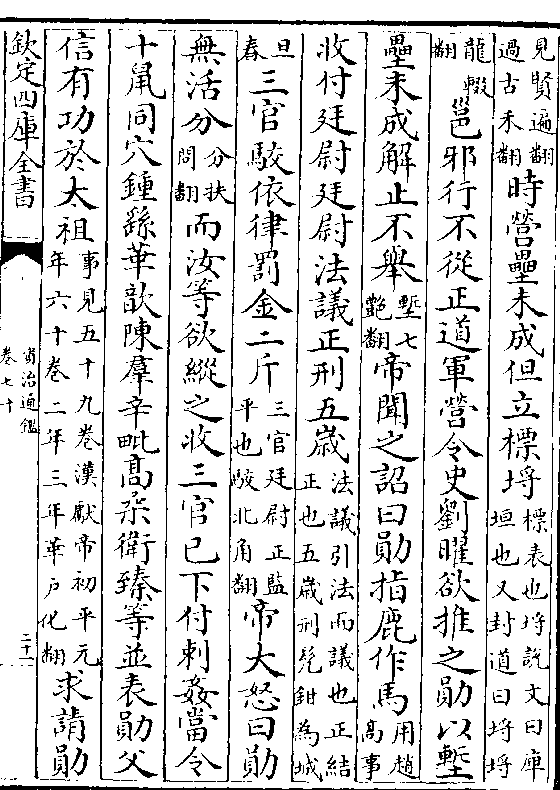 見賢遍翻過古禾翻時營壘未成但立標埓標表也埓說文曰庫垣也又封道曰埓埓
龍輟翻邕邪行不從正道軍營令史劉曜欲推之勛以塹
壘未成解止不舉塹七艶翻帝聞之詔曰勛指鹿作馬用趙高事
收付廷尉廷尉法議正刑五歲法議引法而議也正結正也五歲刑髠鉗為城
旦舂三官駮依律罰金二斤三官廷尉正監平也駮北角翻帝大怒曰勛
無活分分扶問翻而汝等欲縱之收三官已下付刺姦當令
十鼠同穴鍾繇華歆陳羣辛毗高柔衛臻等並表勛父
信有功於太祖事見五十九卷漢獻帝初平元年六十卷二年三年華戶化翻求請勛
欽定四庫全書
資治通鑑
卷七十
二十一